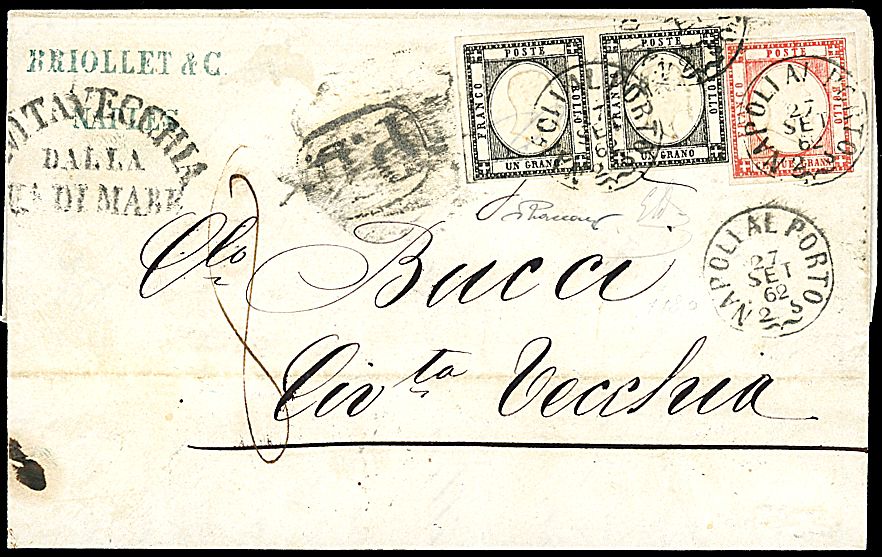 BRIOLLET & C.
NAPLES
CIVITAVECCHIA
DALLA
VIA DI MARE
P.D.
POSTE
FRANCO
BOLLO
UN GRANO
POSTE
FRANCO
BOLLO
UN GRANO
POSTE
FRANCO
BOLLO
DUE GRANA
NAPOLI AL PORTO
27
SET
62
NAPOLI AL PORTO
27
SET
62
2 S
Bucci
Civ.ta Vecchia
8